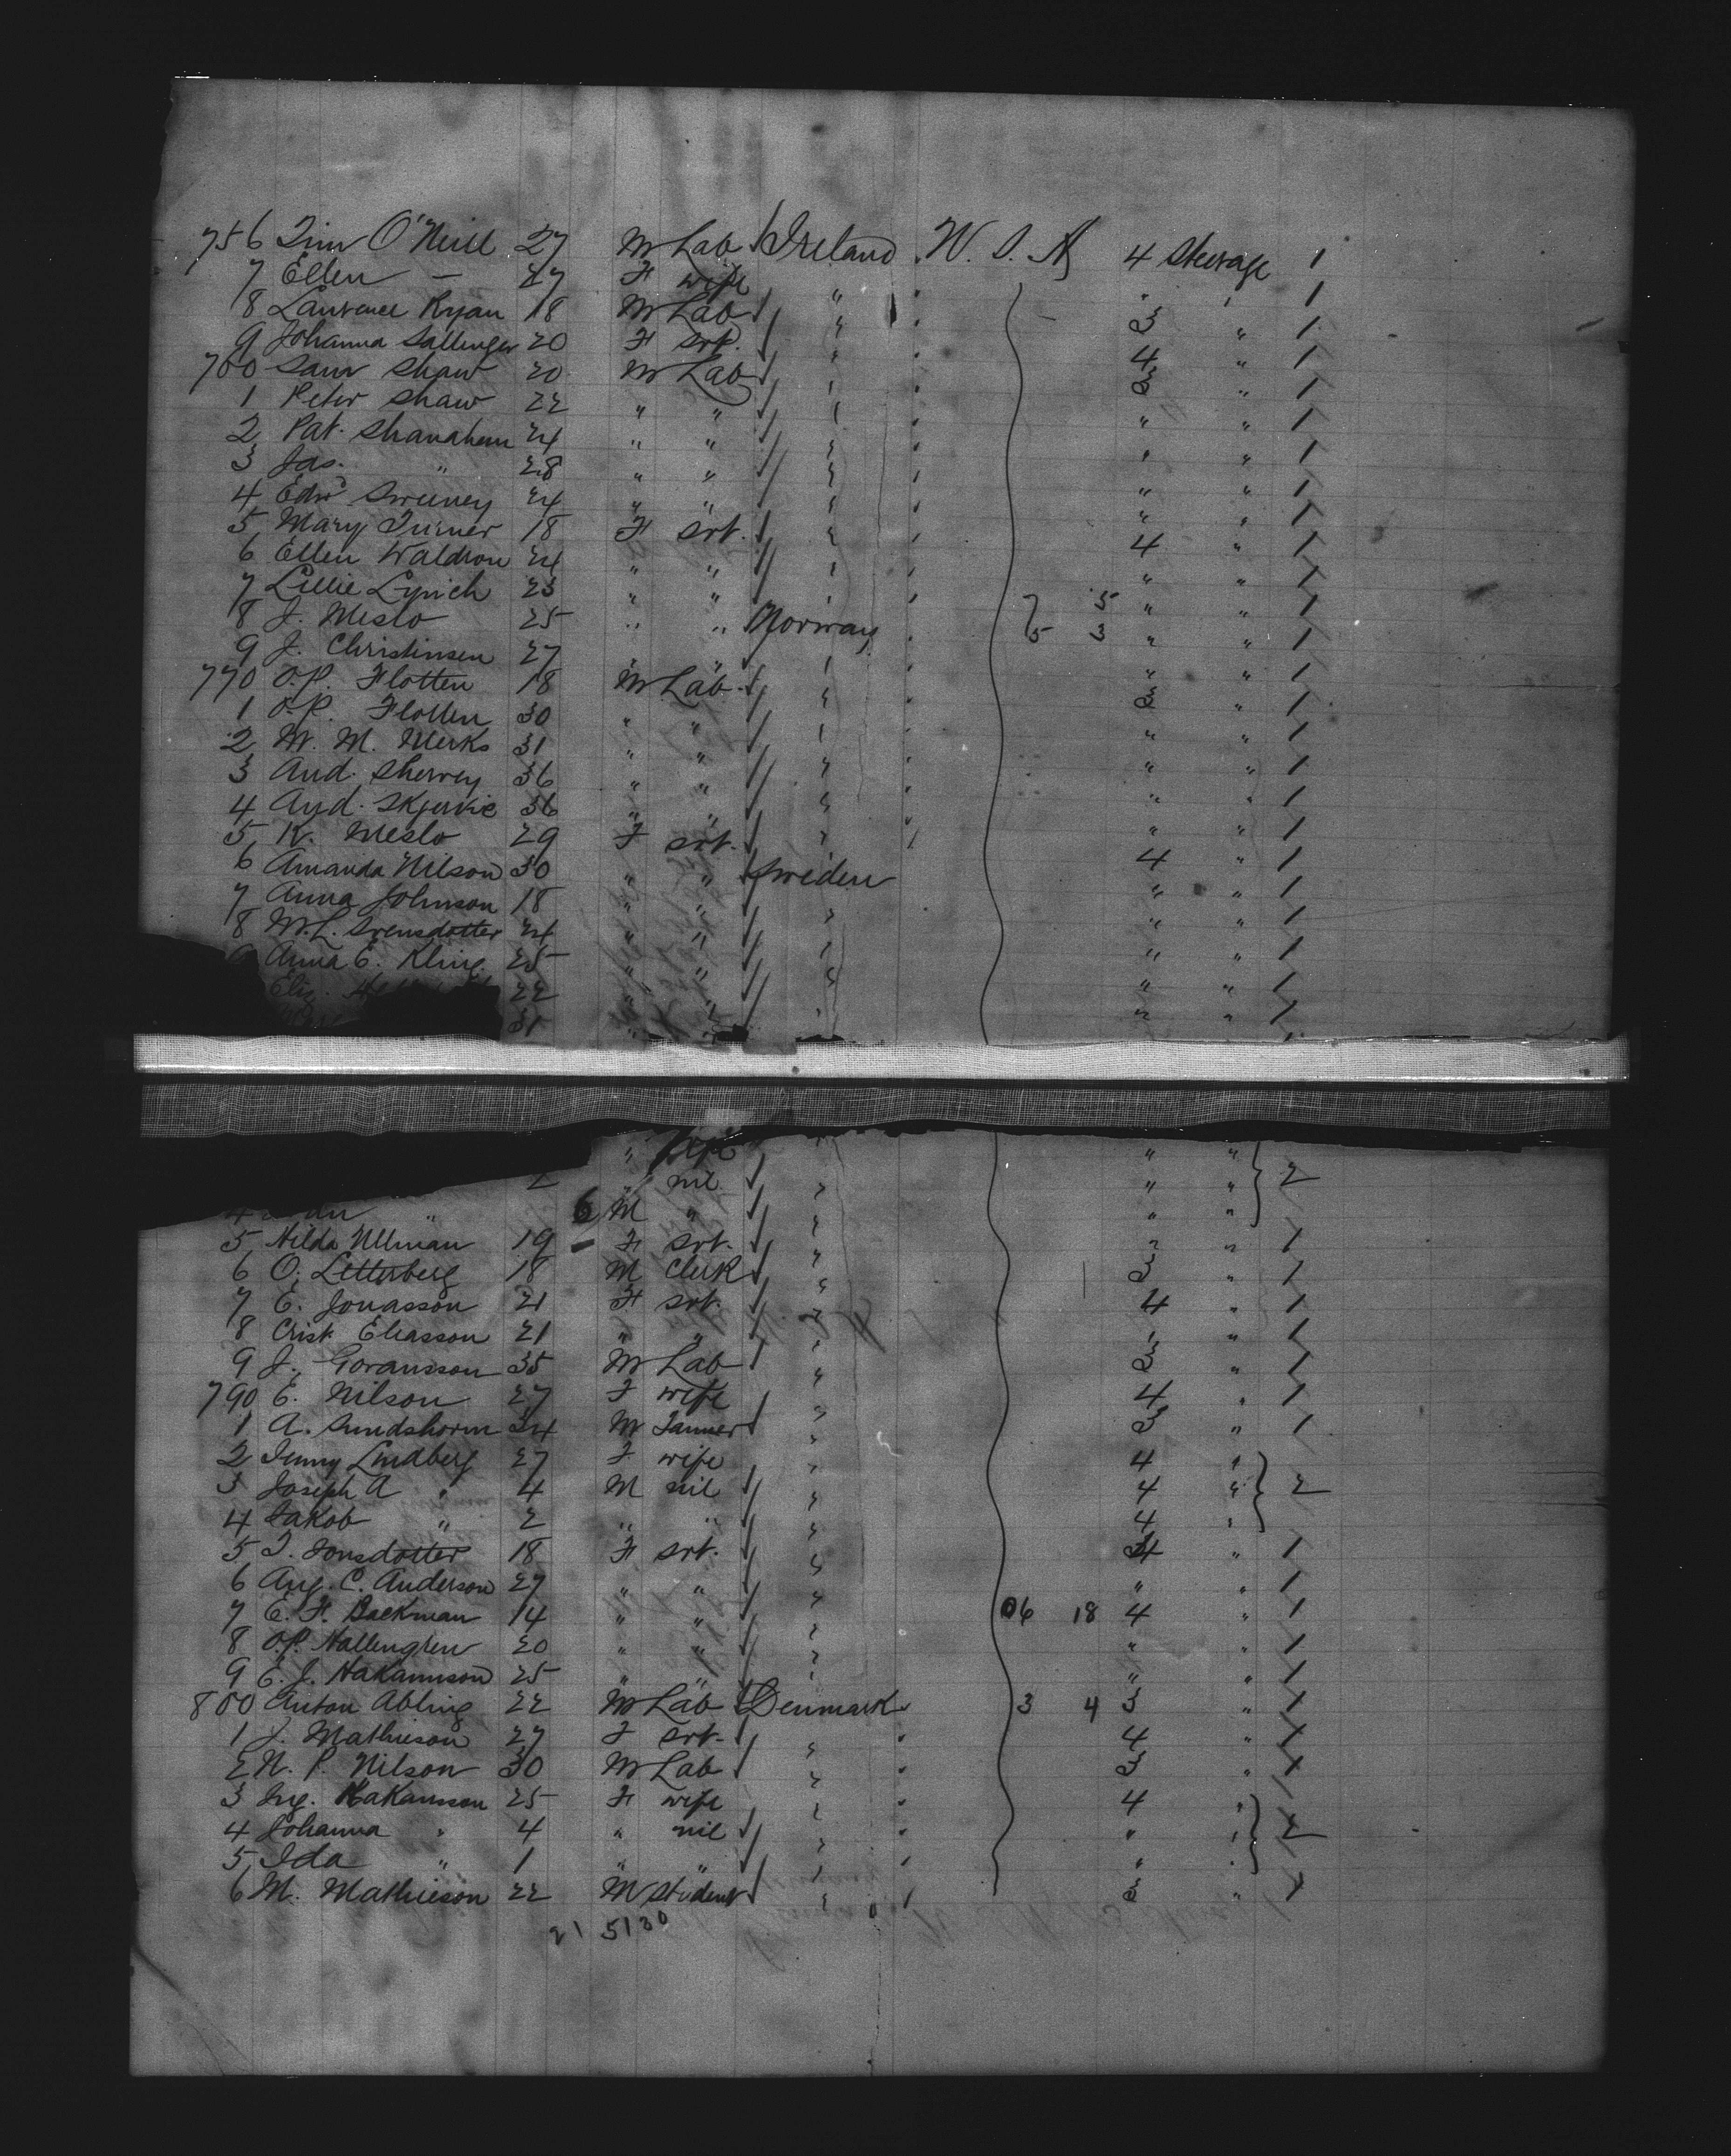 756 Tim O'Neill 27 M Lab Ireland U.S.A 4 Steerage 1
7 Ellen — 27 F wife " " " 1
8 Laurence Ryan 18 M Lab " 3 " 1
9 Johanna Sallenger 20 F srt. " 4 " 1
760 Sam Shaw 20 M Lab " 3 " 1
1 Peter Shaw 22 " " " " " 1
2 Pat. Shanahan 24 " " " " " 1
3 Jas. " 28 " " " " " 1
4 Edwd Sweeney 24 " " " " " 1
5 Mary Turner 18 F srt. " 4 " 1
6 Ellen Waldron 24 " " " " " 1
7 Lillie Lynch 23 " " " 7 5 " " 1
8 J. Meslo 25 " " Norway 5 3 " " 1
9 J. Christinsen 27 " " " " " 1
770 O.P. Flotten 18 M Lab. " 3 " 1
1 O.P. Flotten 30 " " " " " 1
2 M. M. Merks 31 " " " " " 1
3 And. Shervey 36 " " " " " 1
4 And. Skjervie 36 " " " " " 1
5 K. Meslo 29 F srt. " 4 " 1
6 Amanda Nilson 30 " " Sweden " " 1
7 Anna Johnson 18 " " " " " 1
8 M.L. Svensdotter 24 " " " " " 1
9 Anna E. Kling 25 " " " " " 1
Eliz. 22 " " " " " 1
31 " "
" wife " "
2 " nil " " " 2
4 " 6 M " " " "
5 Hilda Ullman 19 F srt. " " " 1
6 O. Letterberg 18 M Clerk " 3 " 1
7 E. Jonasson 21 F srt. " 4 " 1
8 Crist. Eliasson 21 " " " " " 1
9 J. Goransson 35 M Lab " 3 " 1
790 E. Nilson 27 F wife " 4 " 1
1 A. Sundshorm 34 M Tanner " 3 " 1
2 Jenny Lindberg 27 F wife " 4 "
3 Joseph A " 4 M nil " 4 " 2
4 Jakob " 2 " " " 4 "
5 I. Jonsdotter 18 F srt. " 4 " 1
6 Aug. C. Anderson 27 " " " " " 1
7 E. F. Backman 14 " " " 06 18 4 " 1
8 O.P. Hallengren 20 " " " " " 1
9 E. J. Hakannson 25 " " " " " 1
800 Anton Abling 22 M Lab Denmark 3 4 3 " 1
1 J. Mathieson 27 F srt. " 4 " 1
2 N. P. Nilson 30 M Lab " 3 " 1
3 Ing. Hakansson 25 F wife " 4 "
4 Johanna " 4 " nil " " " 2
5 Ida " 1 " " " " "
6 M. Mathieson 22 M student " 3 " 1
21 5130